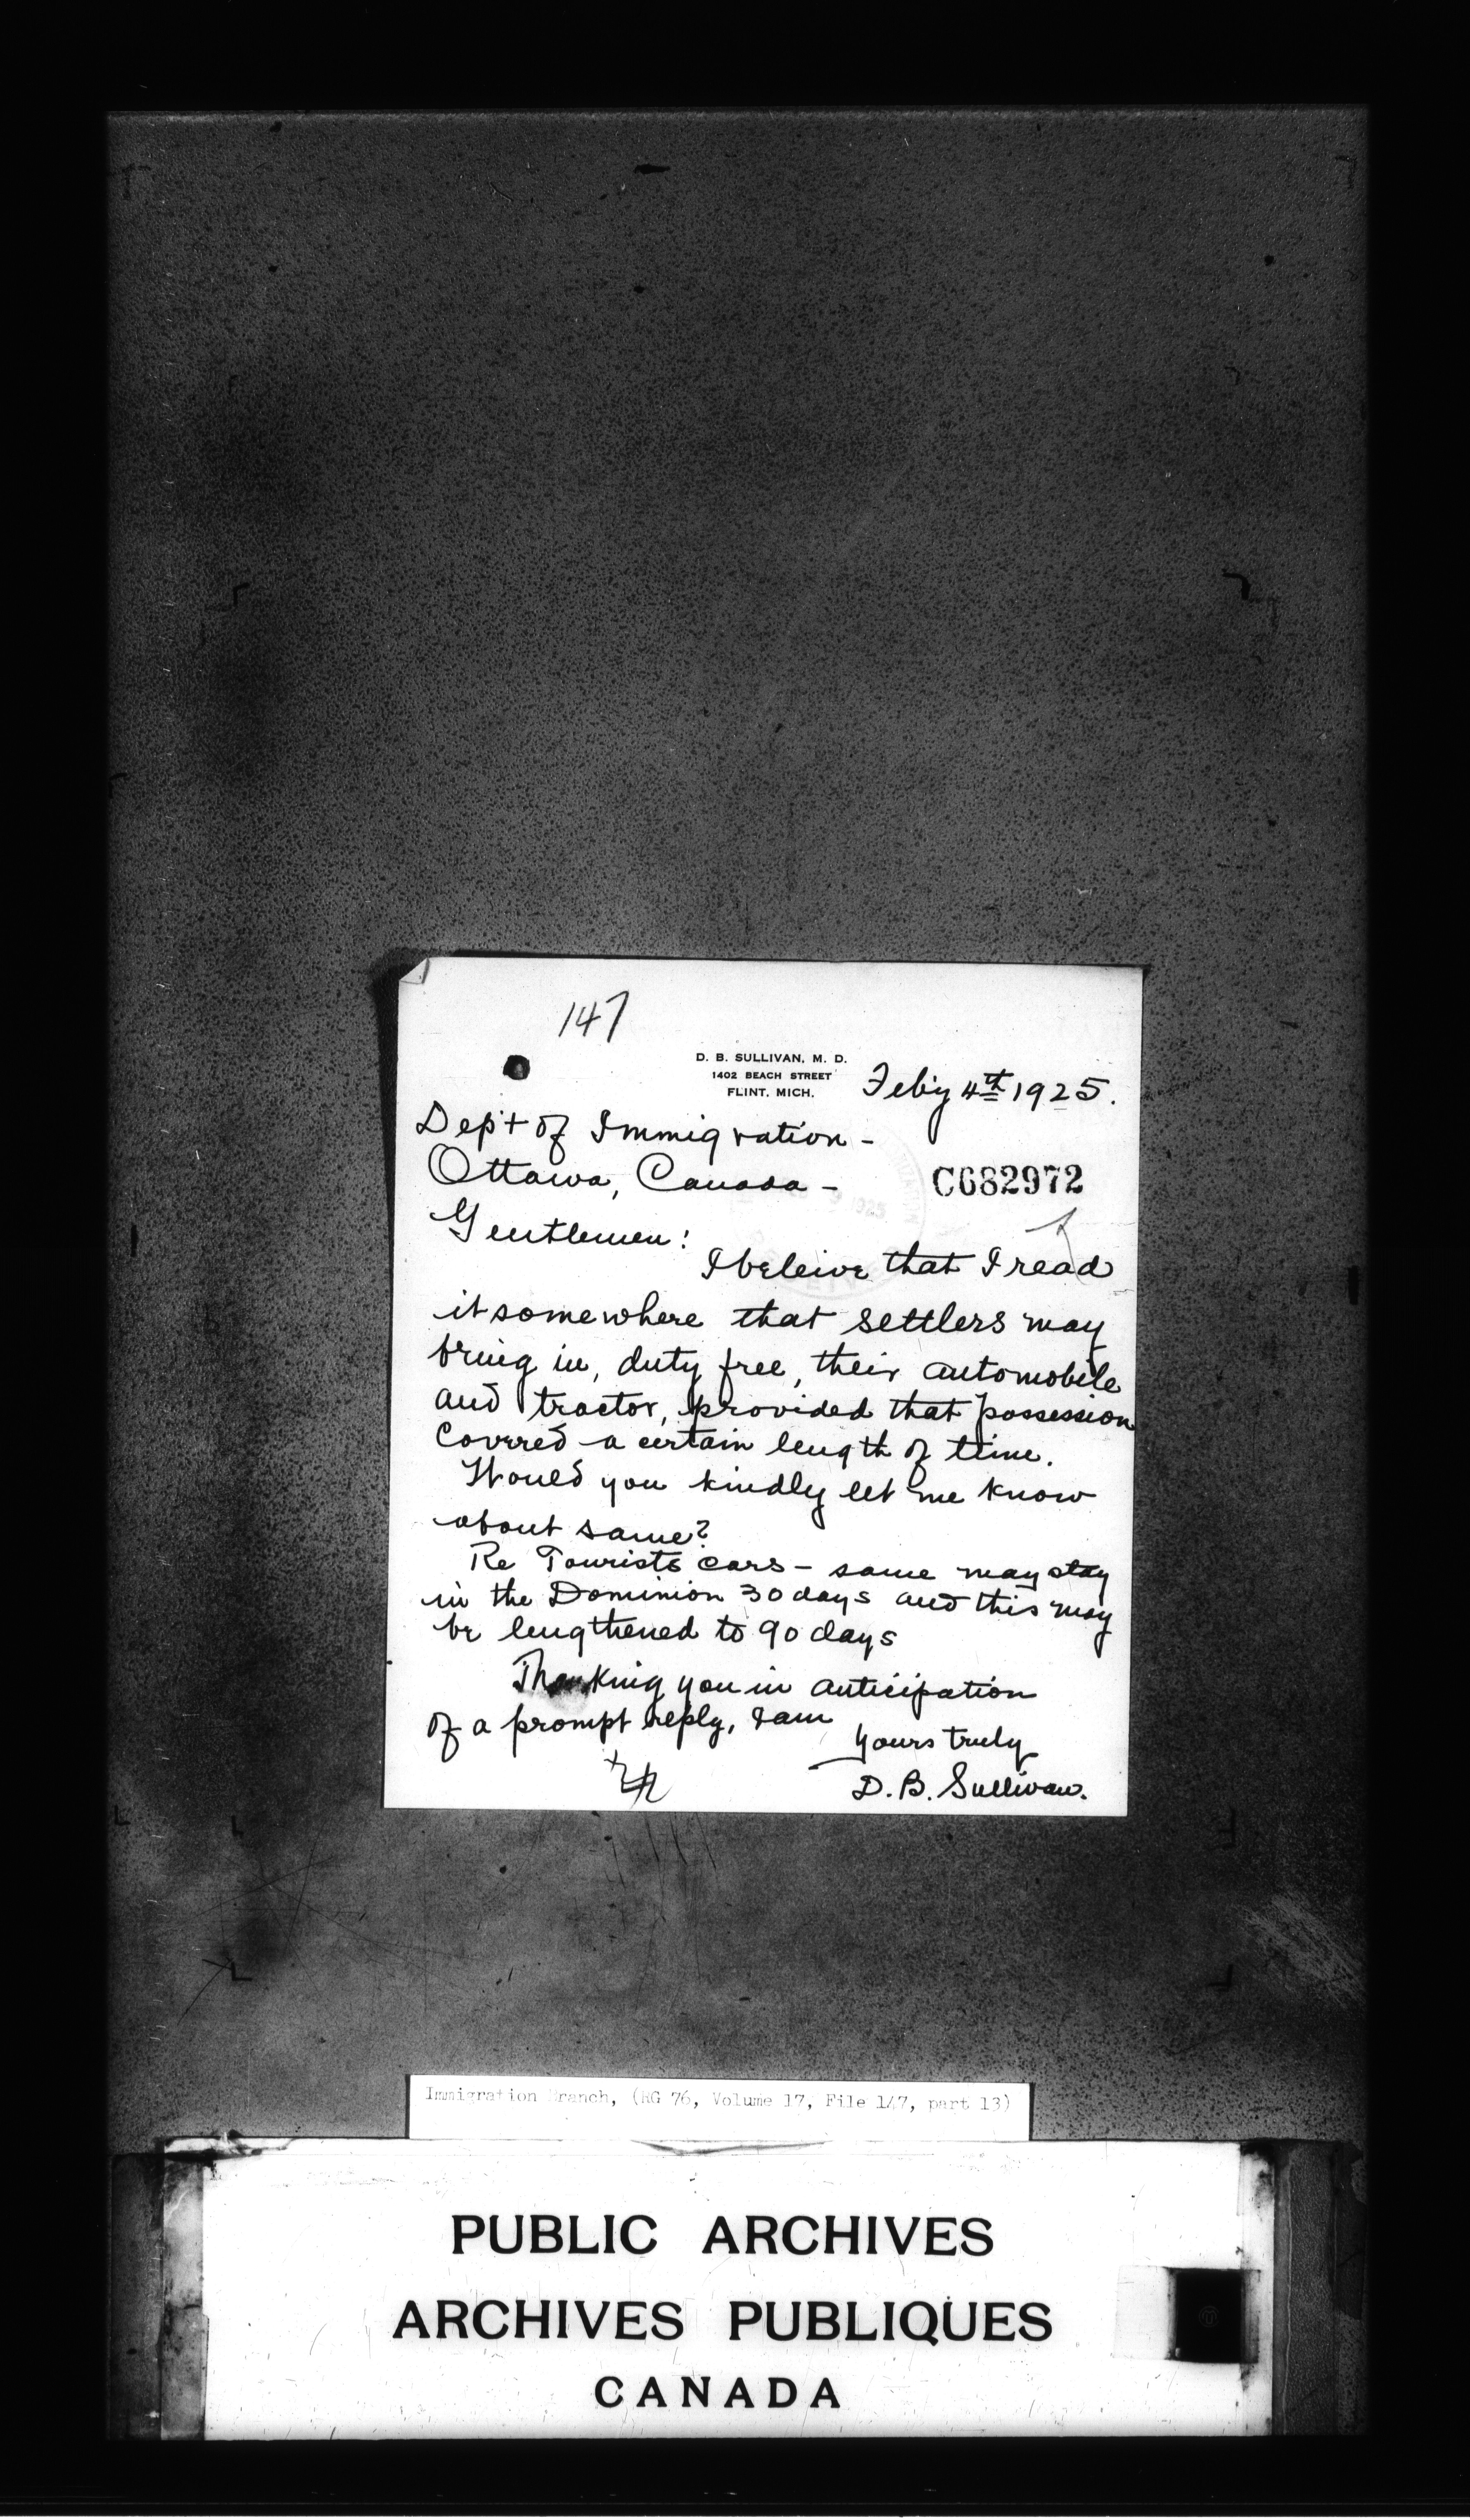 147
D. B. SULLIVAN, M. D.
1402 BEACH STREET
FLINT, MICH.
Feb'y 4th 1925.
Dep't of Immigration -
Ottawa, Canada -
C682972
Gentlemen:
I beleive that I read
it somewhere that settlers may
bring in, duty free, their automobile
and tractor, provided that possession
covered a certain length of time.
Would you kindly let me know
about same?
Re Tourists cars - same may stay
in the Dominion 30 days and this may
be lengthened to 90 days
Thanking you in anticipation
of a prompt reply, I am
yours truly
D. B. Sullivan.
Immigration Branch, (RG 76, Volume 17, File 147, part 13)
PUBLIC ARCHIVES
ARCHIVES PUBLIQUES
CANADA